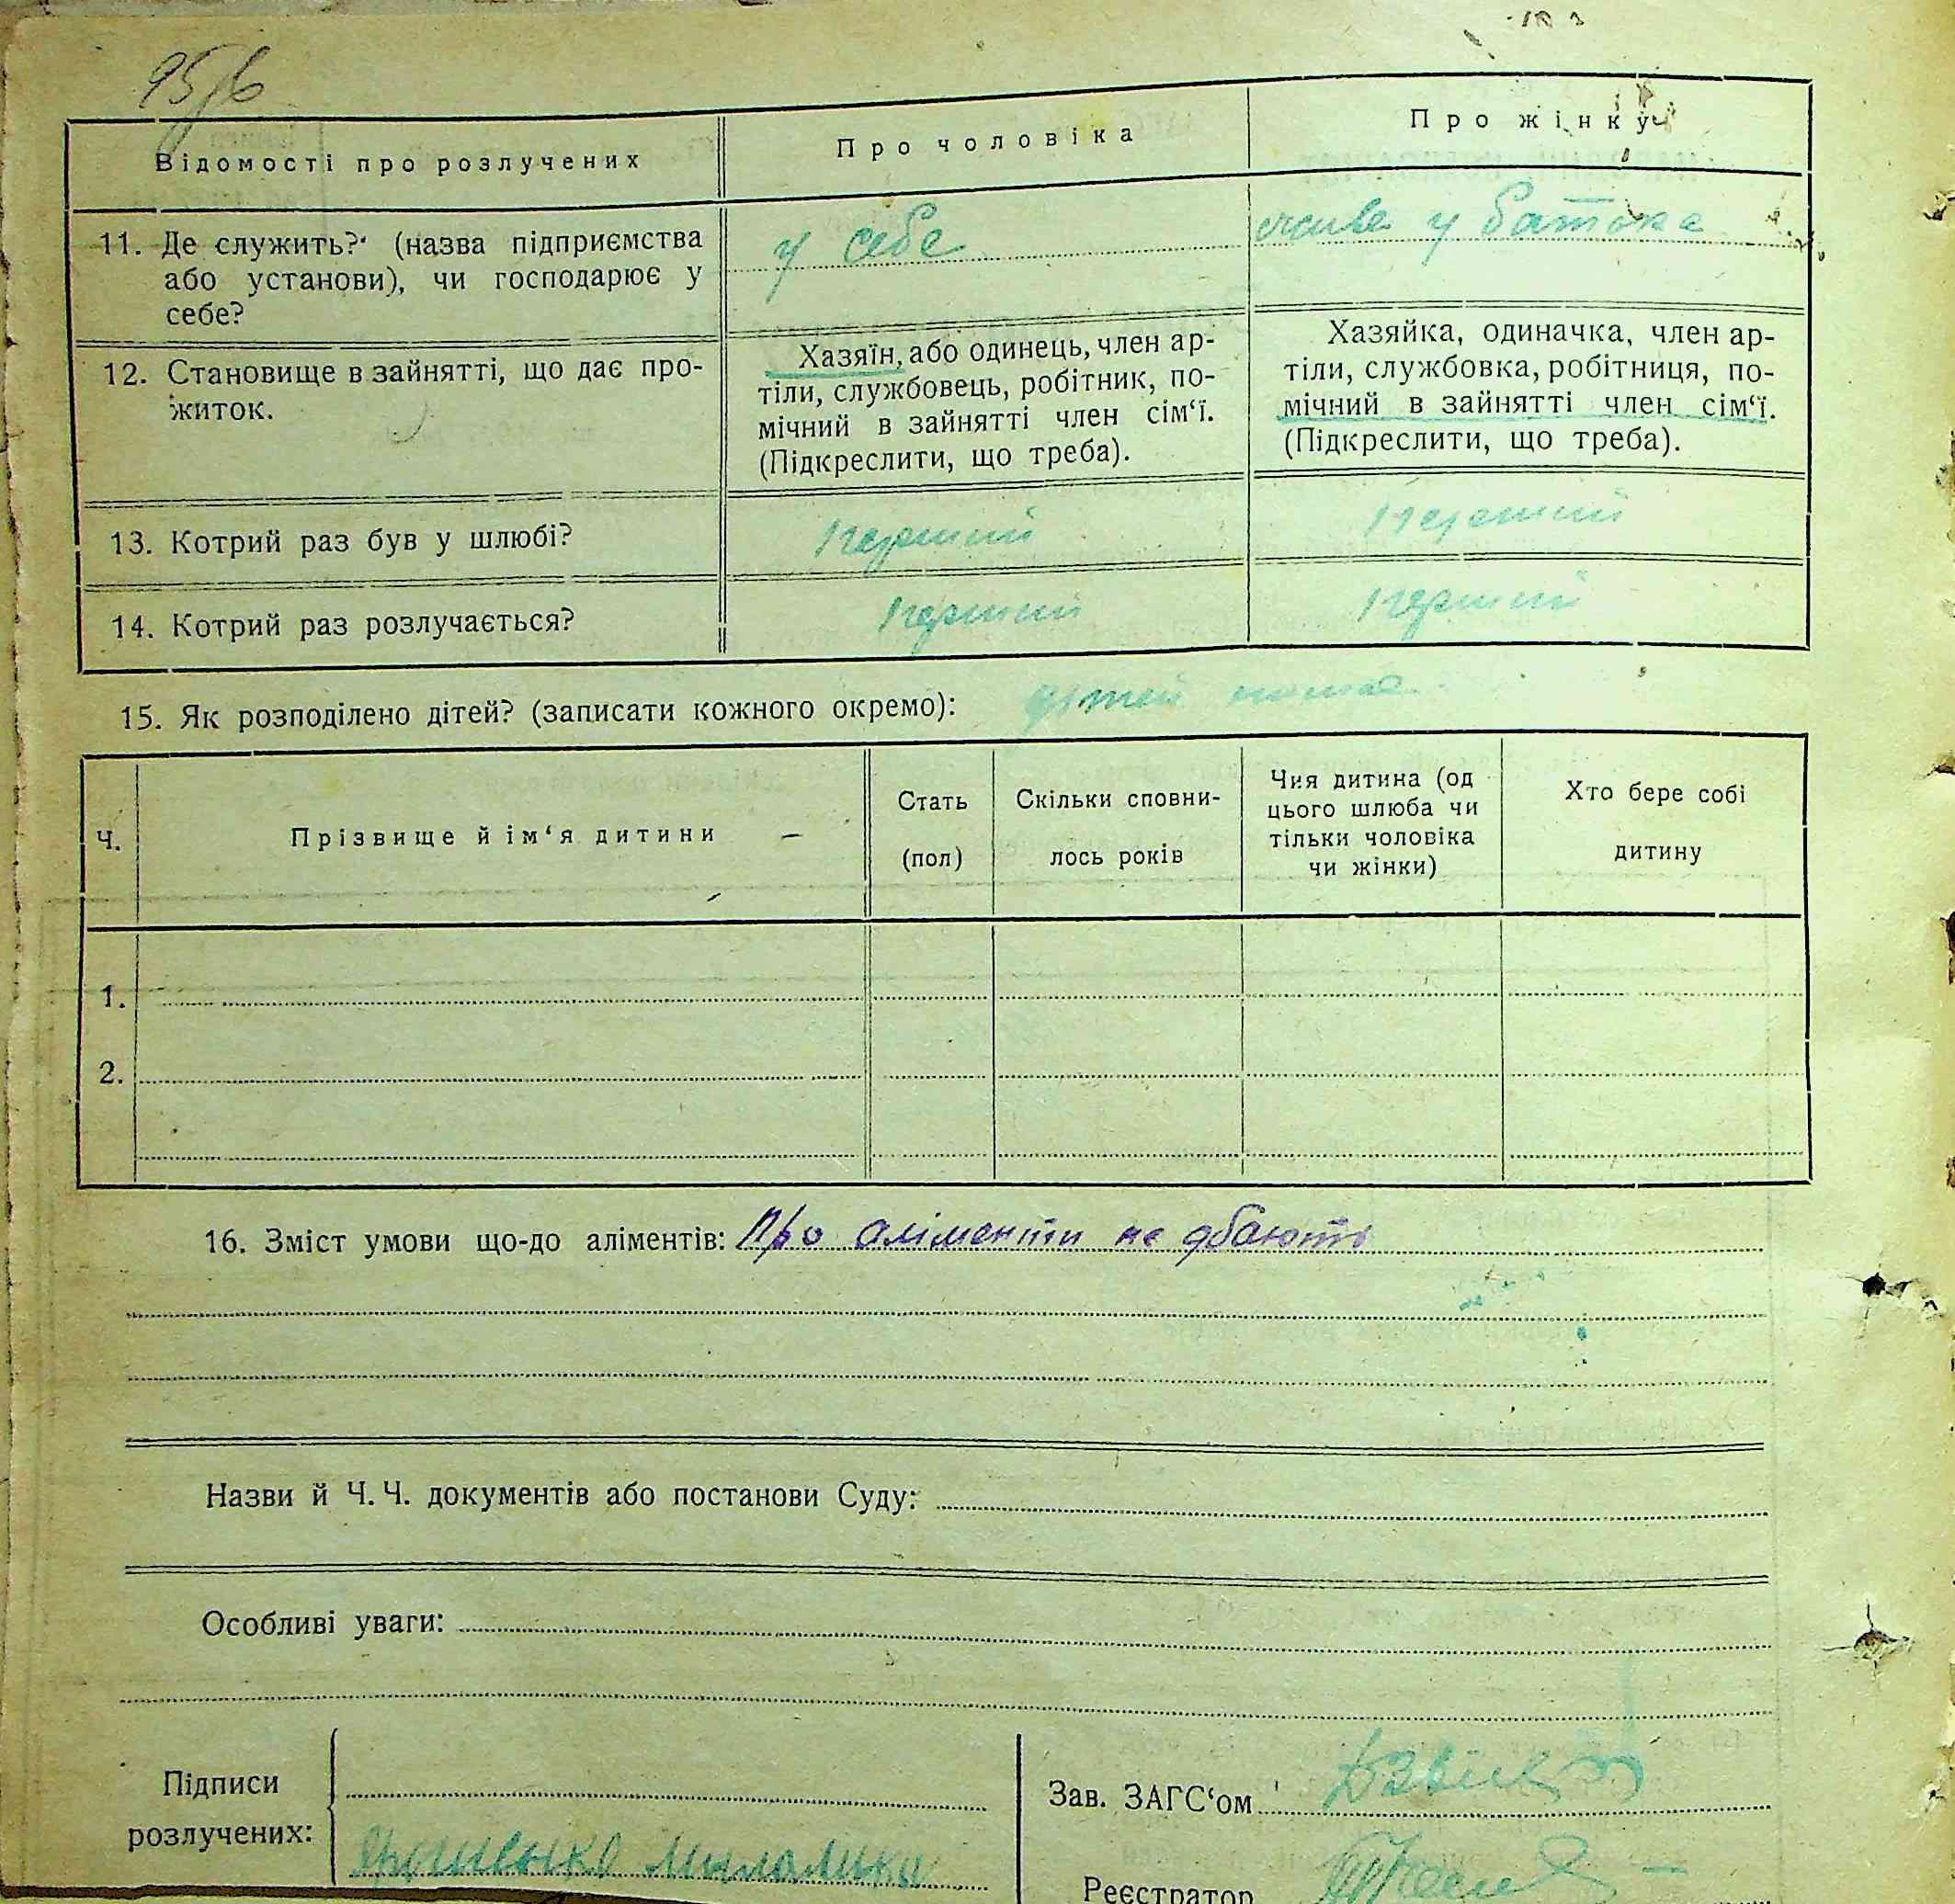 95/6
Відомості про розлучених
Про чоловіка
Про жінку
11. Де служить? (назва підприємства
або установи), чи господарює у
себе?
у себе
живе у батька
12. Становище в зайнятті, що дає про-
житок.
Хазяїн, або одинець, член ар-
тіли, службовець, робітник, по-
мічний в зайнятті член сім‘ї.
(Підкреслити, що треба).
Хазяйка, одиначка, член ар-
тіли, службовка, робітниця, по-
мічний в зайнятті член сім‘ї.
(Підкреслити, що треба).
13. Котрий раз був у шлюбі?
перший
перший
14. Котрий раз розлучається?
перший
перший
15. Як розподілено дітей? (записати кожного окремо): дітей немає
Ч.
Прізвище й ім‘я дитини
Стать
(пол)
Скільки сповни-
лось років
Чия дитина (од
цього шлюба чи
тільки чоловіка
чи жінки)
Хто бере собі
дитину
1.
2.
16. Зміст умови що-до аліментів: Про аліменти не дбають
Назви й Ч. Ч. документів або постанови Суду:
Особливі уваги:
Підписи
розлучених:
Зав. ЗАГС‘ом
Реєстратор